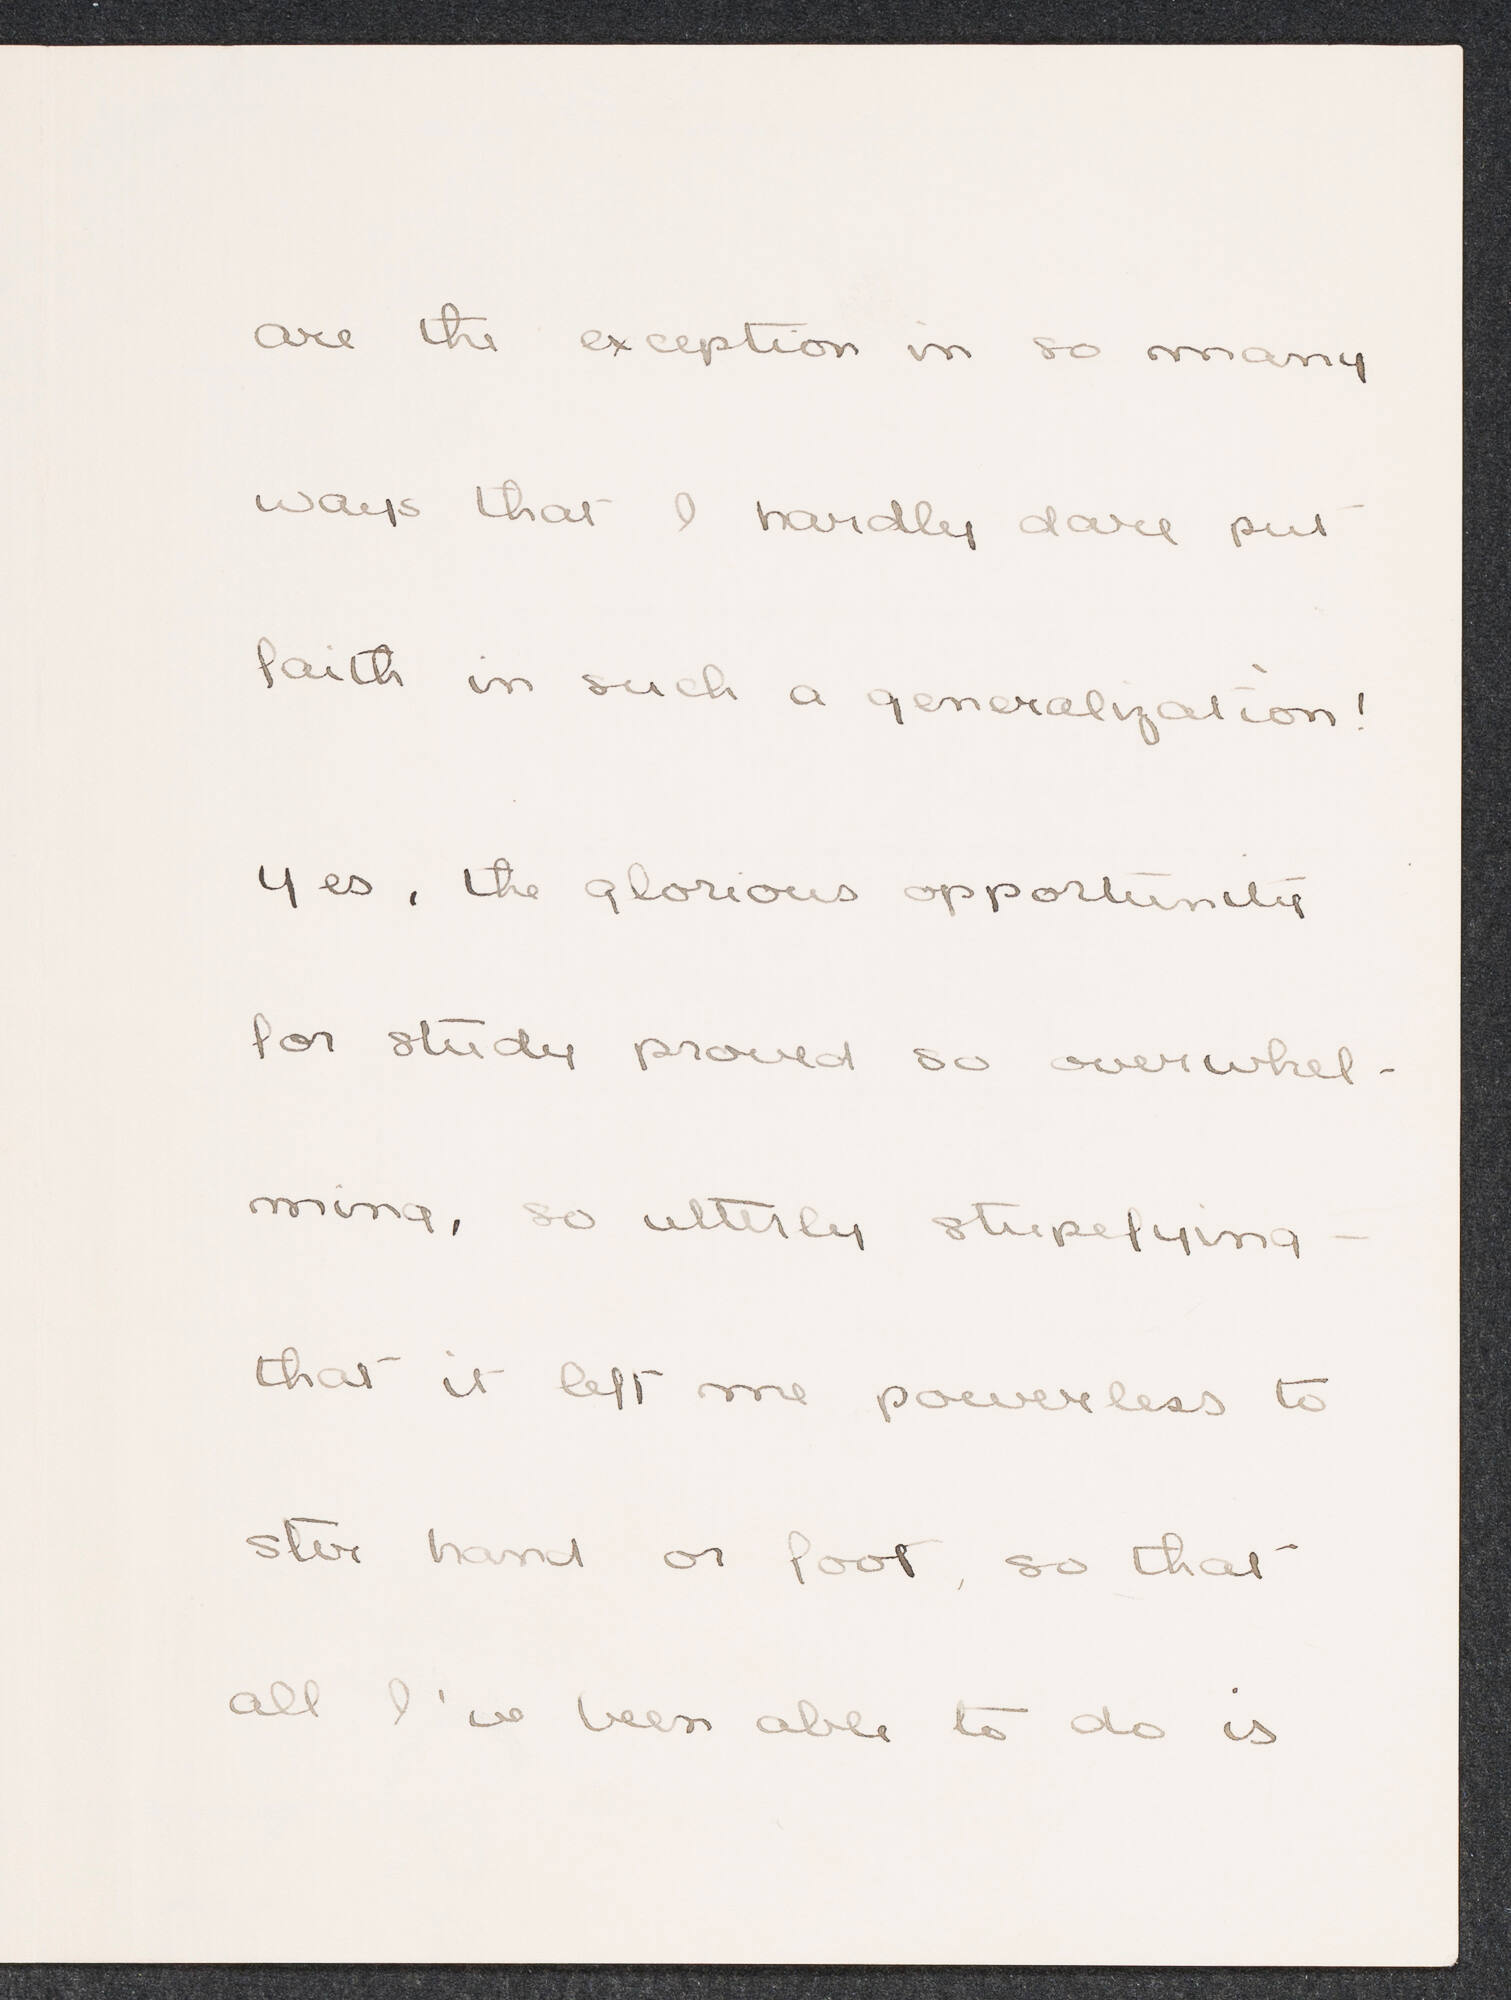 are the exception in so many
ways that I hardly dare put
faith in such a generalization!
Yes, the glorious opportunity
for study proved so overwhel-
ming, so utterly stupefying -
that it left me powerless to
stir hand or foot, so that
all I've been able to do is